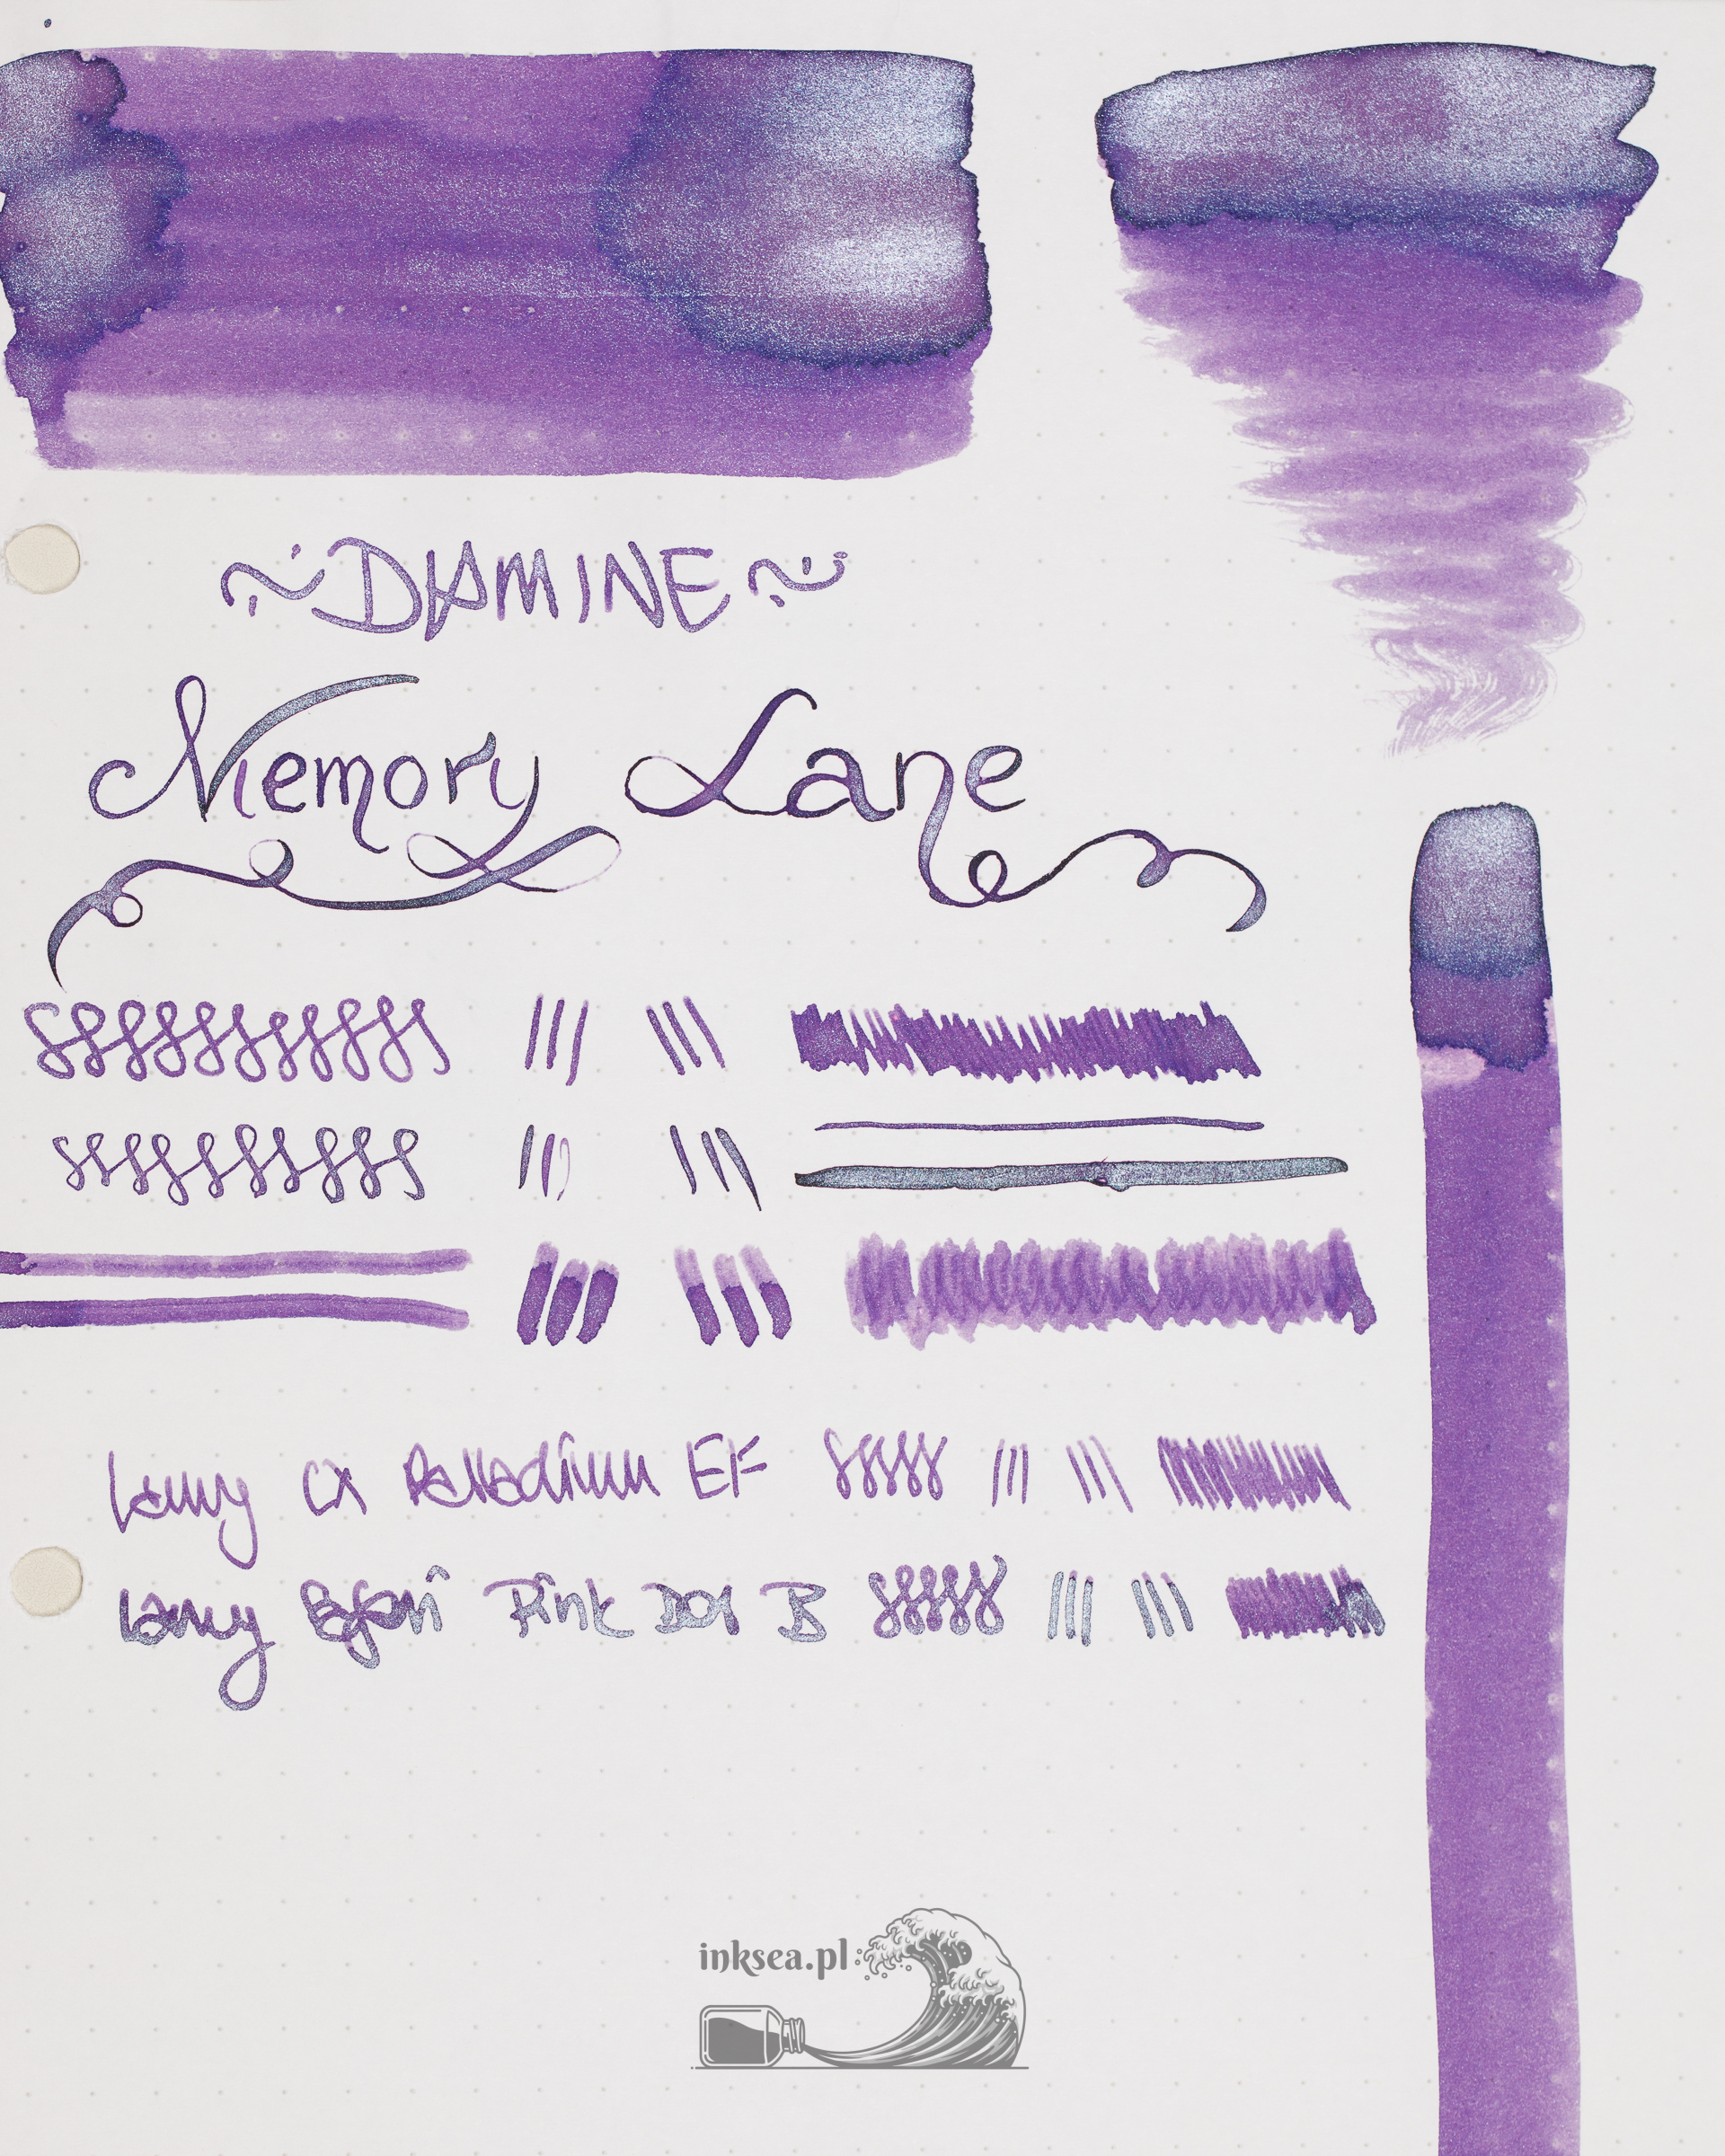 ~DIAMINE~
Memory Lane
Lamy CX Palladium EF
Lamy Safari Pink Dot B
inksea.pl